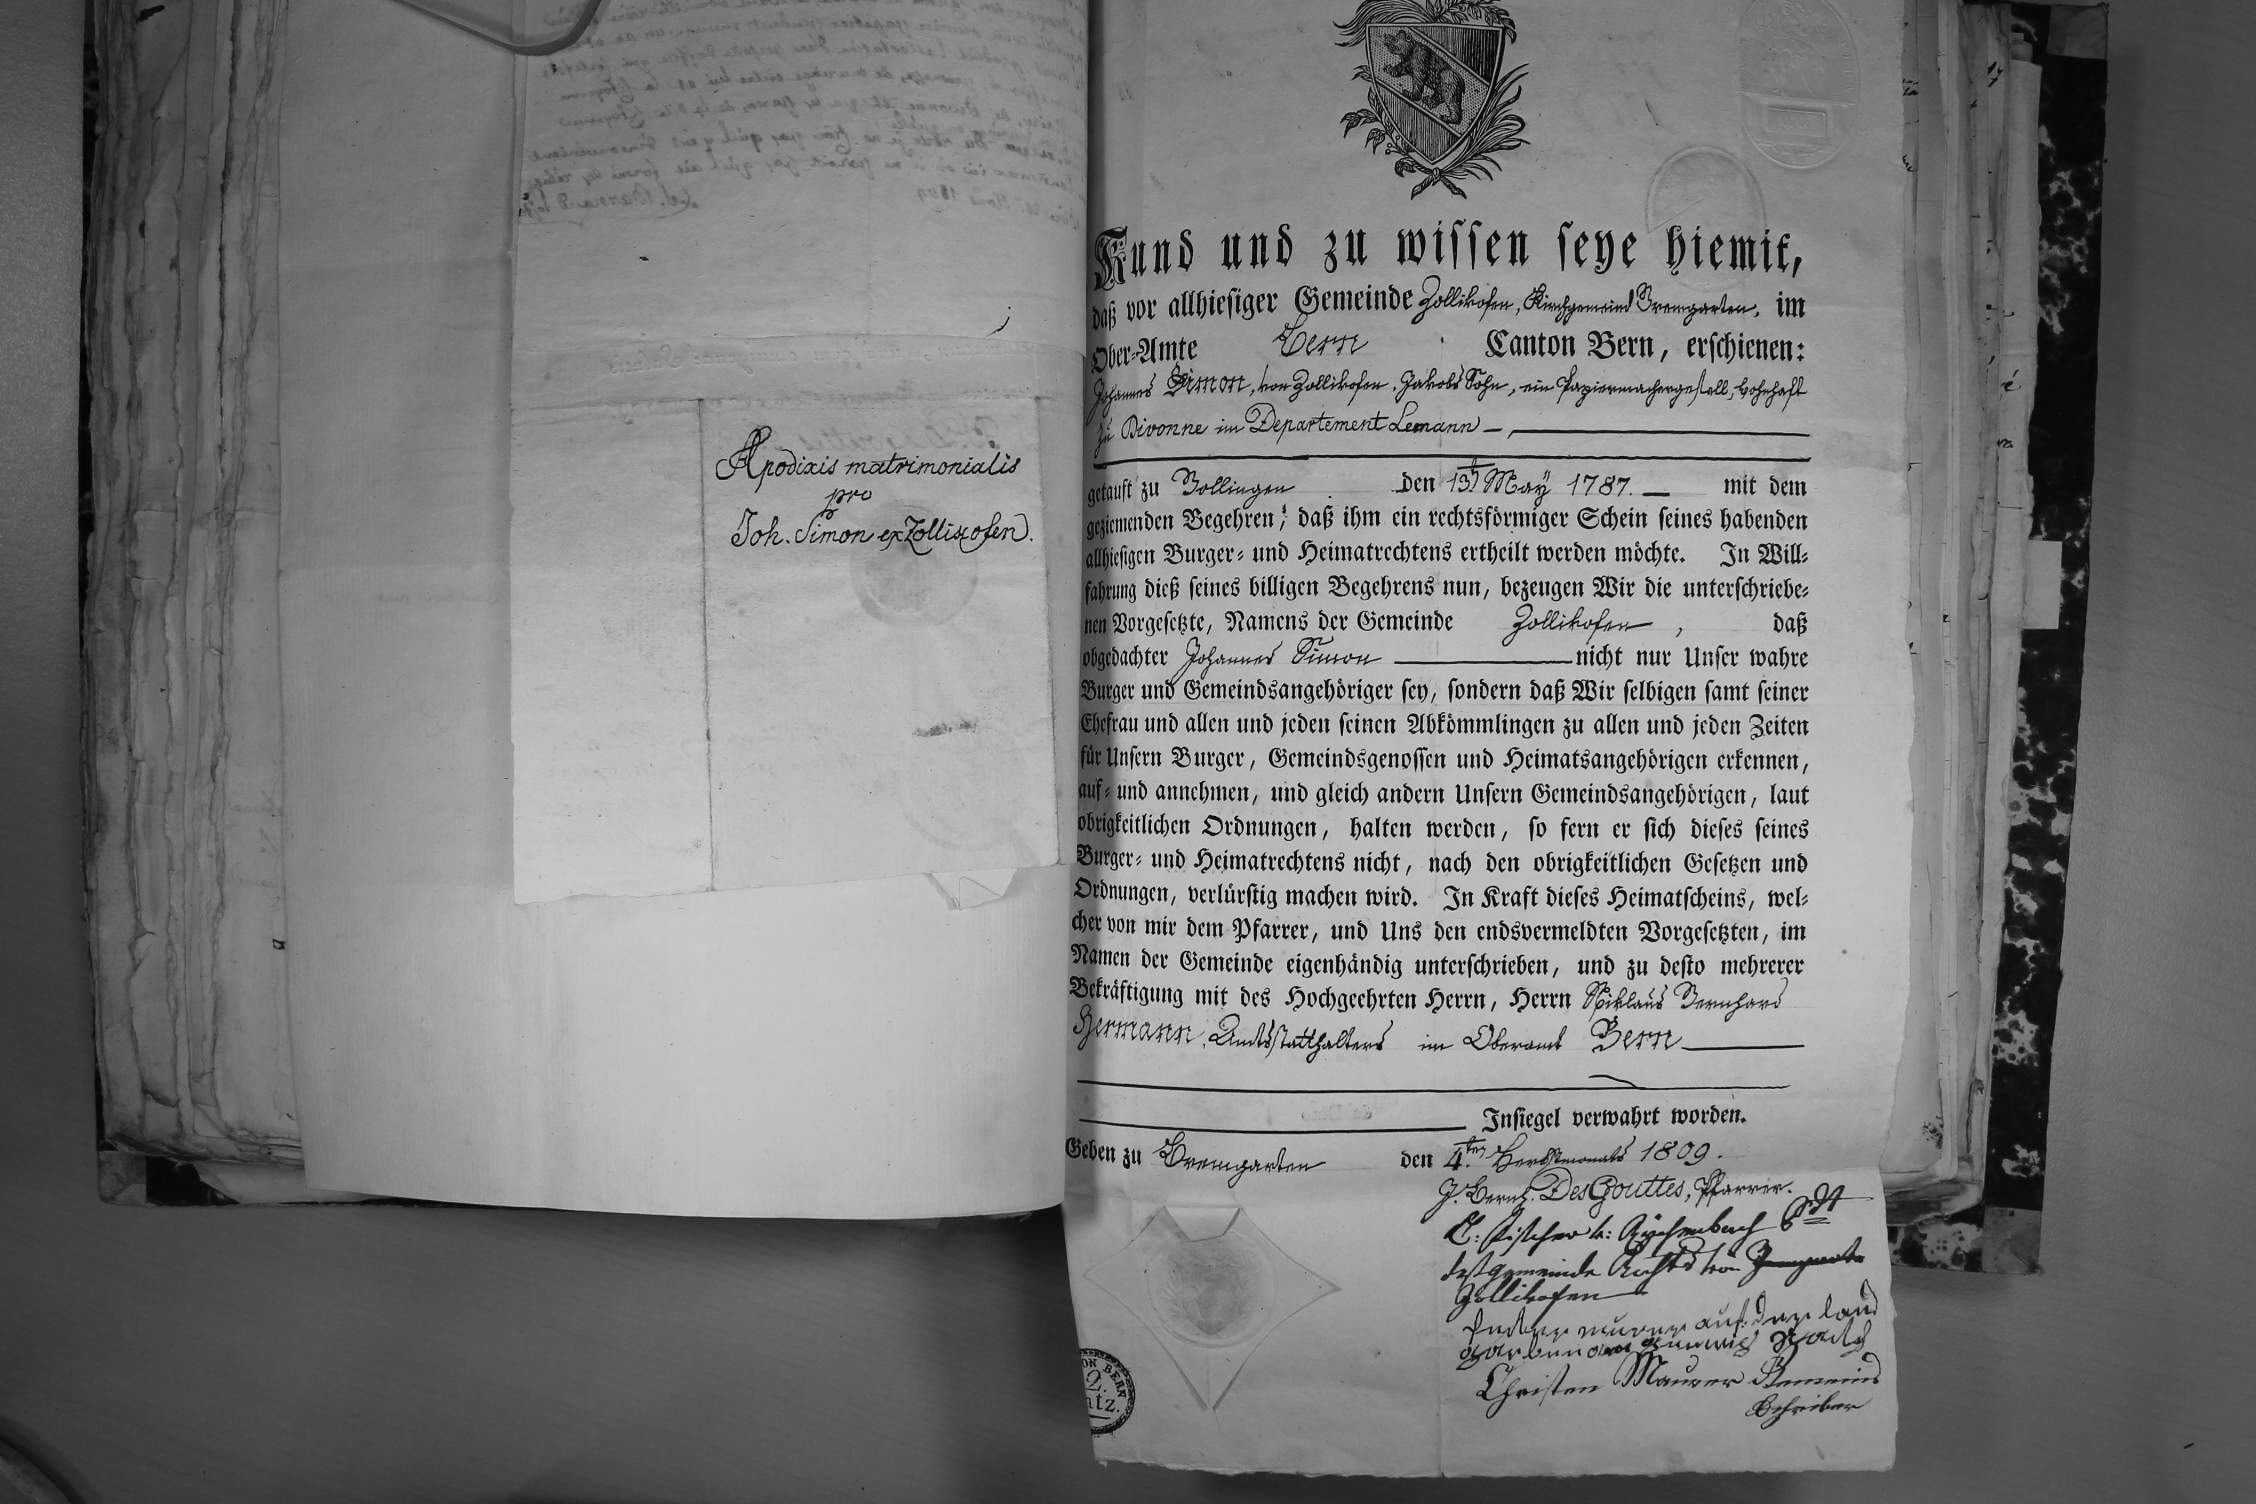 Apodixis matrimonialis
pro
Joh. Simon ex Zollikofen.
Kund und zu wissen seye hiemit,
daß vor allhiesiger Gemeinde Zollikofen, Kirchgemeind Bremgarten, im
Ober-Amte Bern Canton Bern, erschienen:
Johannes Simon, von Zollikofen, Jakobs Sohn, ein Papiermachergesell, wohnhaft
zu Divonne im Departement Lemann
getauft zu Bolligen den 13t May 1787. mit dem
geziemenden Begehren, daß ihm ein rechtsförmiger Schein seines habenden
allhiesigen Burger- und Heimatrechtens ertheilt werden möchte. In Will-
fahrung dieß seines billigen Begehrens nun, bezeugen Wir die unterschriebe-
nen Vorgesetzte, Namens der Gemeinde Zollikofen, daß
obgedachter Johannes Simon nicht nur Unser wahre
Burger und Gemeindsangehöriger sey, sondern daß Wir selbigen samt seiner
Ehefrau und allen und jeden seinen Abkömmlingen zu allen und jeden Zeiten
für Unsern Burger, Gemeindsgenossen und Heimatsangehörigen erkennen,
auf- und annehmen, und gleich andern Unsern Gemeindsangehörigen, laut
obrigkeitlichen Ordnungen, halten werden, so fern er sich dieses seines
Burger- und Heimatrechtens nicht, nach den obrigkeitlichen Gesetzen und
Ordnungen, verlürstig machen wird. In Kraft dieses Heimatscheins, wel-
cher von mir dem Pfarrer, und Uns den endsvermeldten Vorgesetzten, im
Namen der Gemeinde eigenhändig unterschrieben, und zu desto mehrerer
Bekräftigung mit des Hochgeehrten Herrn, Herrn Niklaus Bernhard
Hermann, Amtsstatthalters im Oberamt Bern
Insiegel verwahrt worden.
Geben zu Bremgarten den 4.ten Herbstmonats 1809.
J. Bernh. DesGouttes, Pfarrer.
Fischer v: Rychenbach
des Gemeinde Raths von
Zollikofen
auf der land
Christen Maurer Gemeind
Schreiber
ON BERN
2.
atz.